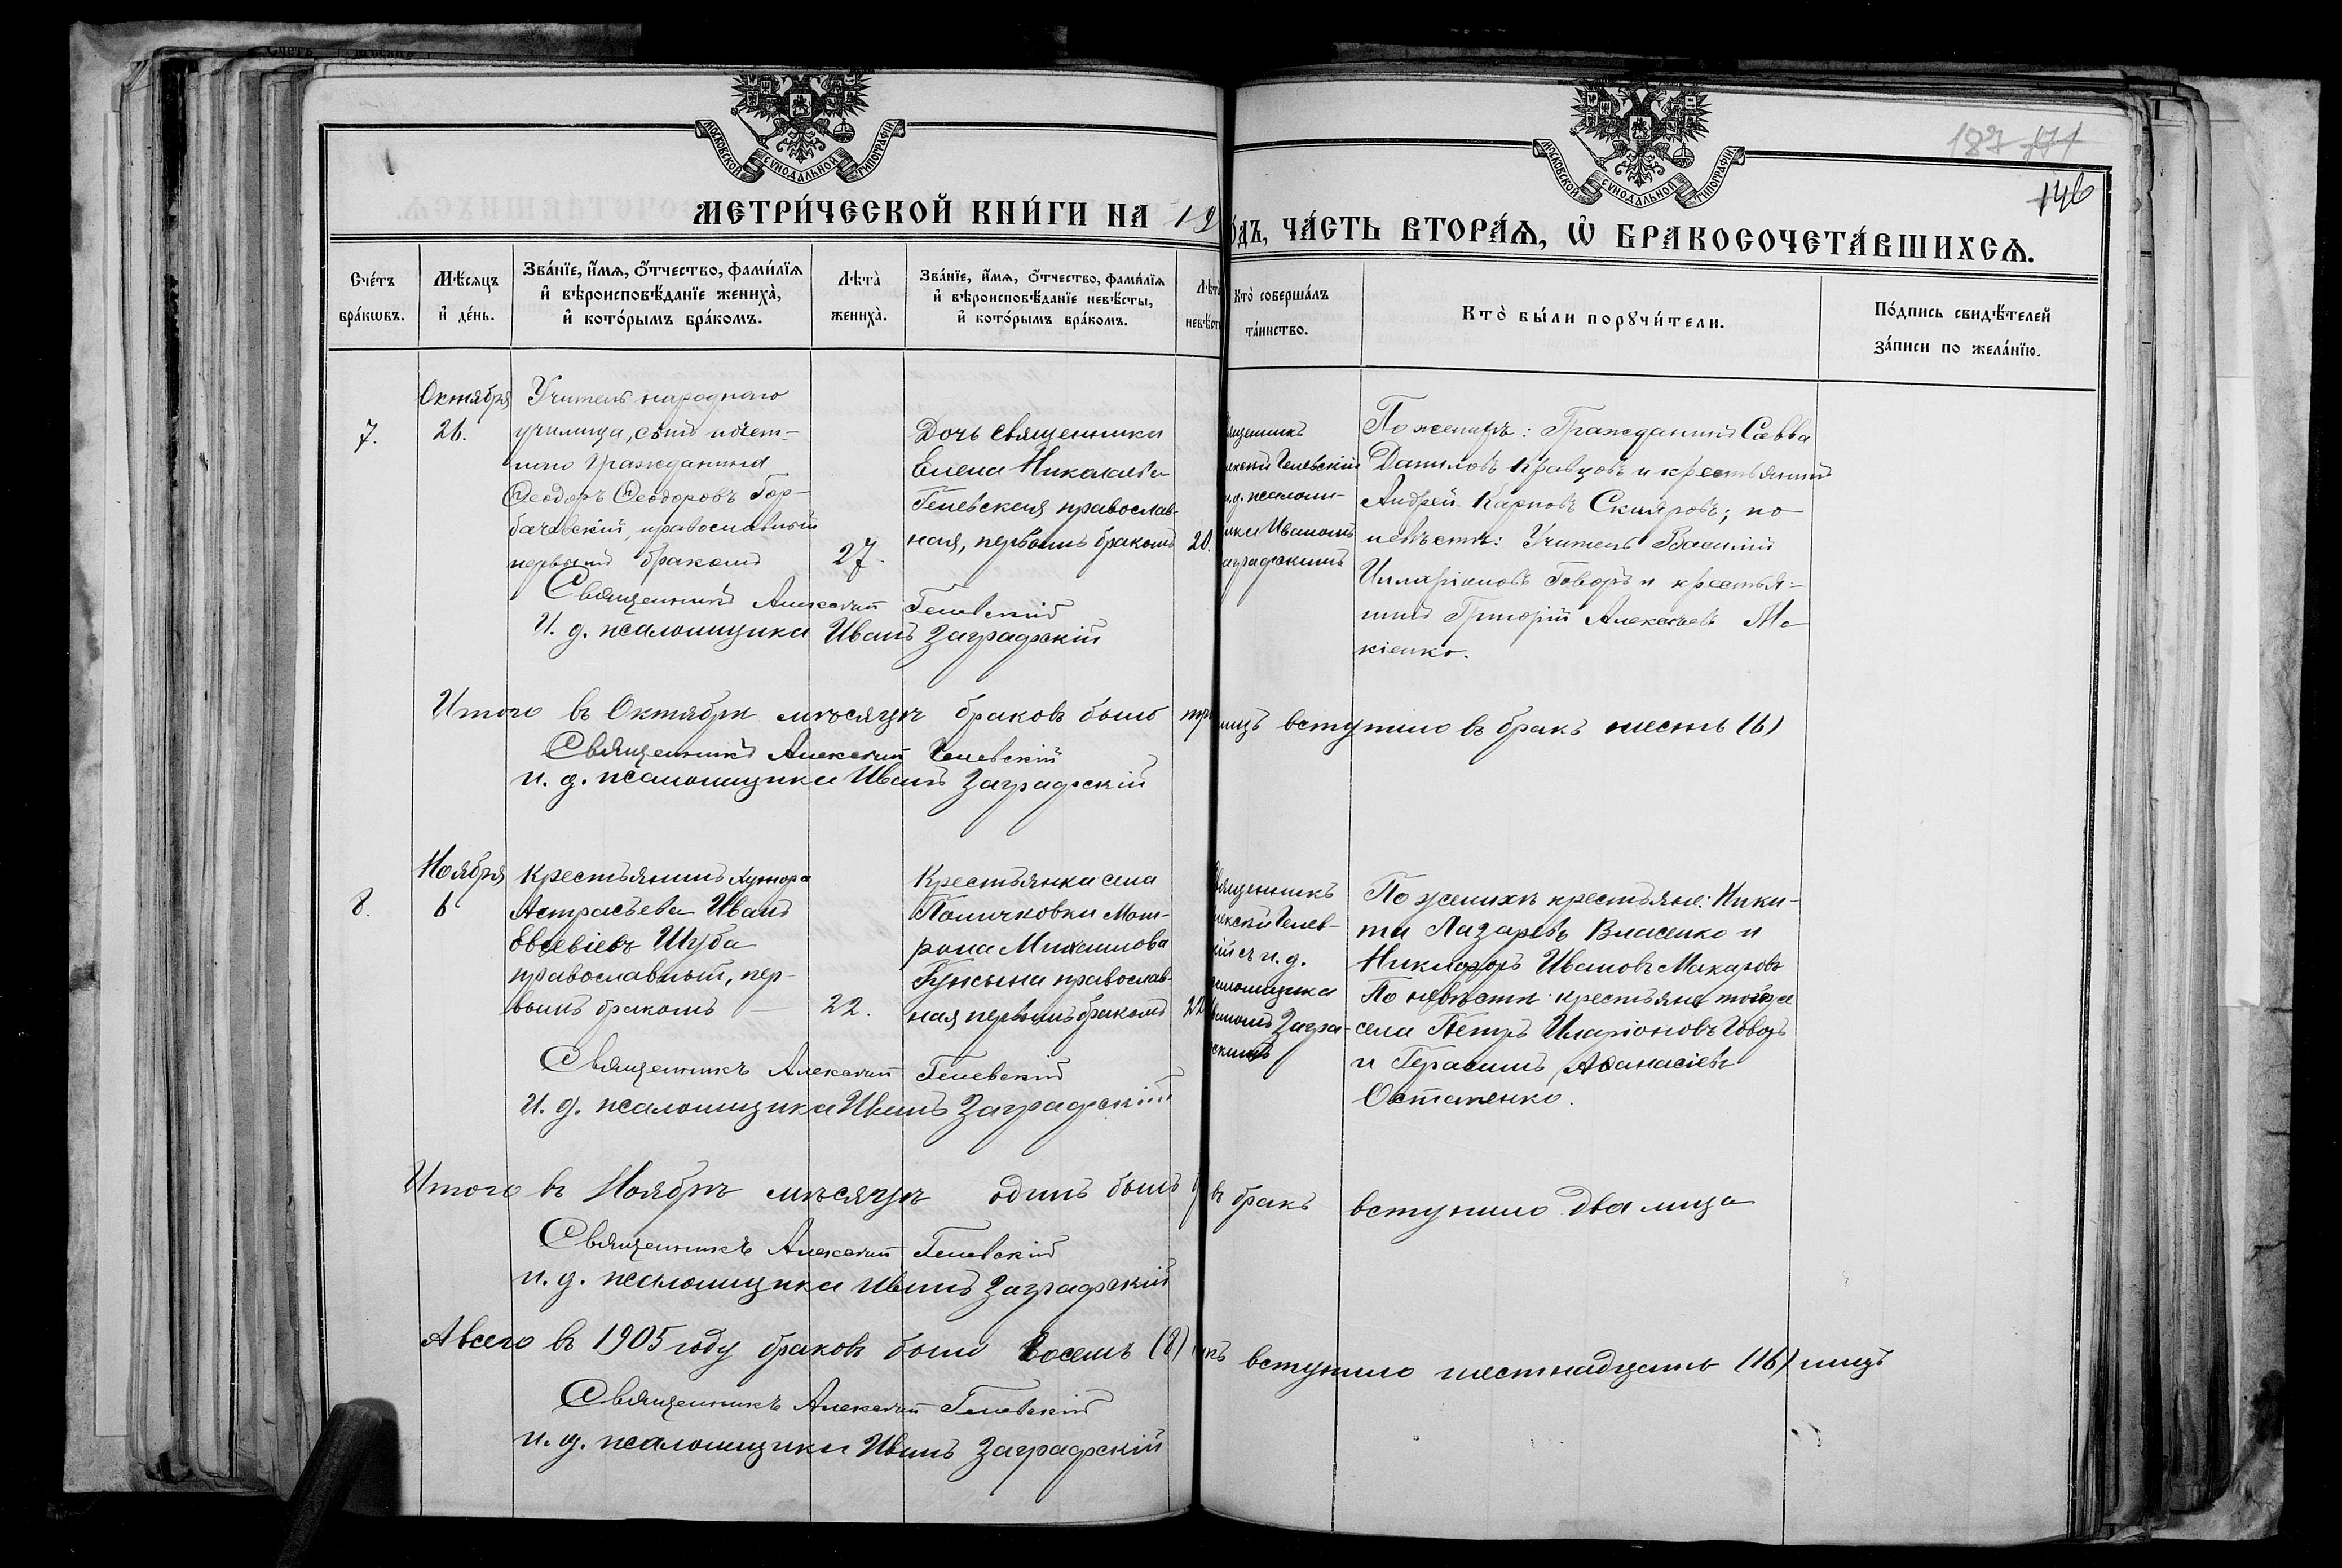 187 171
146
МОСКОВСКОЙ СѴНОДАЛЬНОЙ ТИПОГРАФІИ
МОСКОВСКОЙ СѴНОДАЛЬНОЙ ТИПОГРАФІИ
МЕТРИ́ЧЕСКОЙ КНИ́ГИ НА 19
ѻ́ДЪ, ЧА́СТЬ ВТОРА́Ѧ, Ѽ БРАКОСОЧЕТА́ВШИХСѦ.
Сче́тъ бра́кѡвъ.
Мѣ́сяцъ и҆ де́нь.
Зва́нїе, и҆́мѧ, ѻ҆́тчество, фами́лїѧ и҆ вѣроисповѣ́данїе жениха̀, и҆ кото́рымъ бра́комъ.
Лѣта̀ жениха̀.
Зва́нїе, и҆́мѧ, ѻ҆́тчество, фами́лїѧ и҆ вѣроисповѣ́данїе невѣ́сты, и҆ кото́рымъ бра́комъ.
Лѣта невѣст
Кто̀ соверша́лъ та́инство.
Кто̀ бы́ли порꙋчи́тели.
По́дпись свидѣ́телей за́писи по жела́нїю.
7.
Октября
26.
Учитель народнаго
училища, сынъ почет-
наго гражданина
Ѳеодоръ Ѳеодоровъ Гор-
бачевскій, православный
первымъ бракомъ
27.
Дочь священника
Елена Николаева
Гелевская православ-
ная, первымъ бракомъ
20.
ященникъ
лексій Гелевскій
и.д. псаломщ-
ика Иваномъ
аградскимъ
По женихѣ: Гражданинъ Савва
Даниловъ Кравцовъ и крестьянинъ
Андрей Карповъ Скляровъ; по
невѣстѣ: Учитель Василій
Илларіоновъ Говоръ и крестья-
нинъ Григорій Алексѣевъ Мо-
кіенко.
Священникъ Алексій Гелевскій
И. д. псаломщика Иванъ Заградскій
Итого въ Октябрѣ мѣсяцѣ браковъ было тр лицъ вступило въ бракъ шесть (6)
Священникъ Алексій Гелевскій
и. д. псаломщика Иванъ Заградскій
8.
Ноября
6
Крестьянинъ хутора
Астрасьева Иванъ
Евсевіевъ Шуба
православный, пер-
вымъ бракомъ
22.
Крестьянка села
Поличковки Мат-
рона Михаилова
православ-
ная первымъ бракомъ
22
вященникъ
лексій Гелев-
кій съ и. д.
саломщика
Иваномъ Загра-
скимъ
По женихѣ крестьяне: Ники-
та Лазаревъ Власенко и
Никифоръ Ивановъ Макаровъ
По невѣстѣ крестьяне той же
села Петръ Иларіоновъ Говоръ
и Герасимъ Аѳанасіевъ
Остапенко.
Священникъ Алексій Гелевскій
И. д. псаломщика Иванъ Заградскій
Итого въ Ноябрѣ мѣсяцѣ одинъ былъ въ бракъ вступило два лица
Священникъ Алексій Гелевскій
и. д. псаломщика Иванъ Заградскій
А всего въ 1905 году браковъ было восемь (8) вступило шестнадцать (16) лицъ
Священникъ Алексій Гелевскій
и. д. псаломщика Иванъ Заградскій